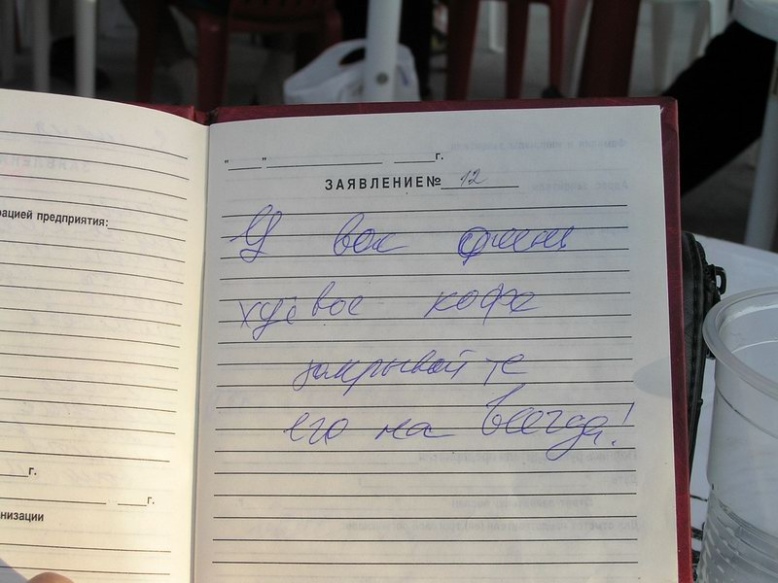 рацией предприятия:
г.
г.
низации
"___"______________ _____г.
ЗАЯВЛЕНИЕ № 12
У вас очень
хуёвое кофе
закрывайте
его на всегда!